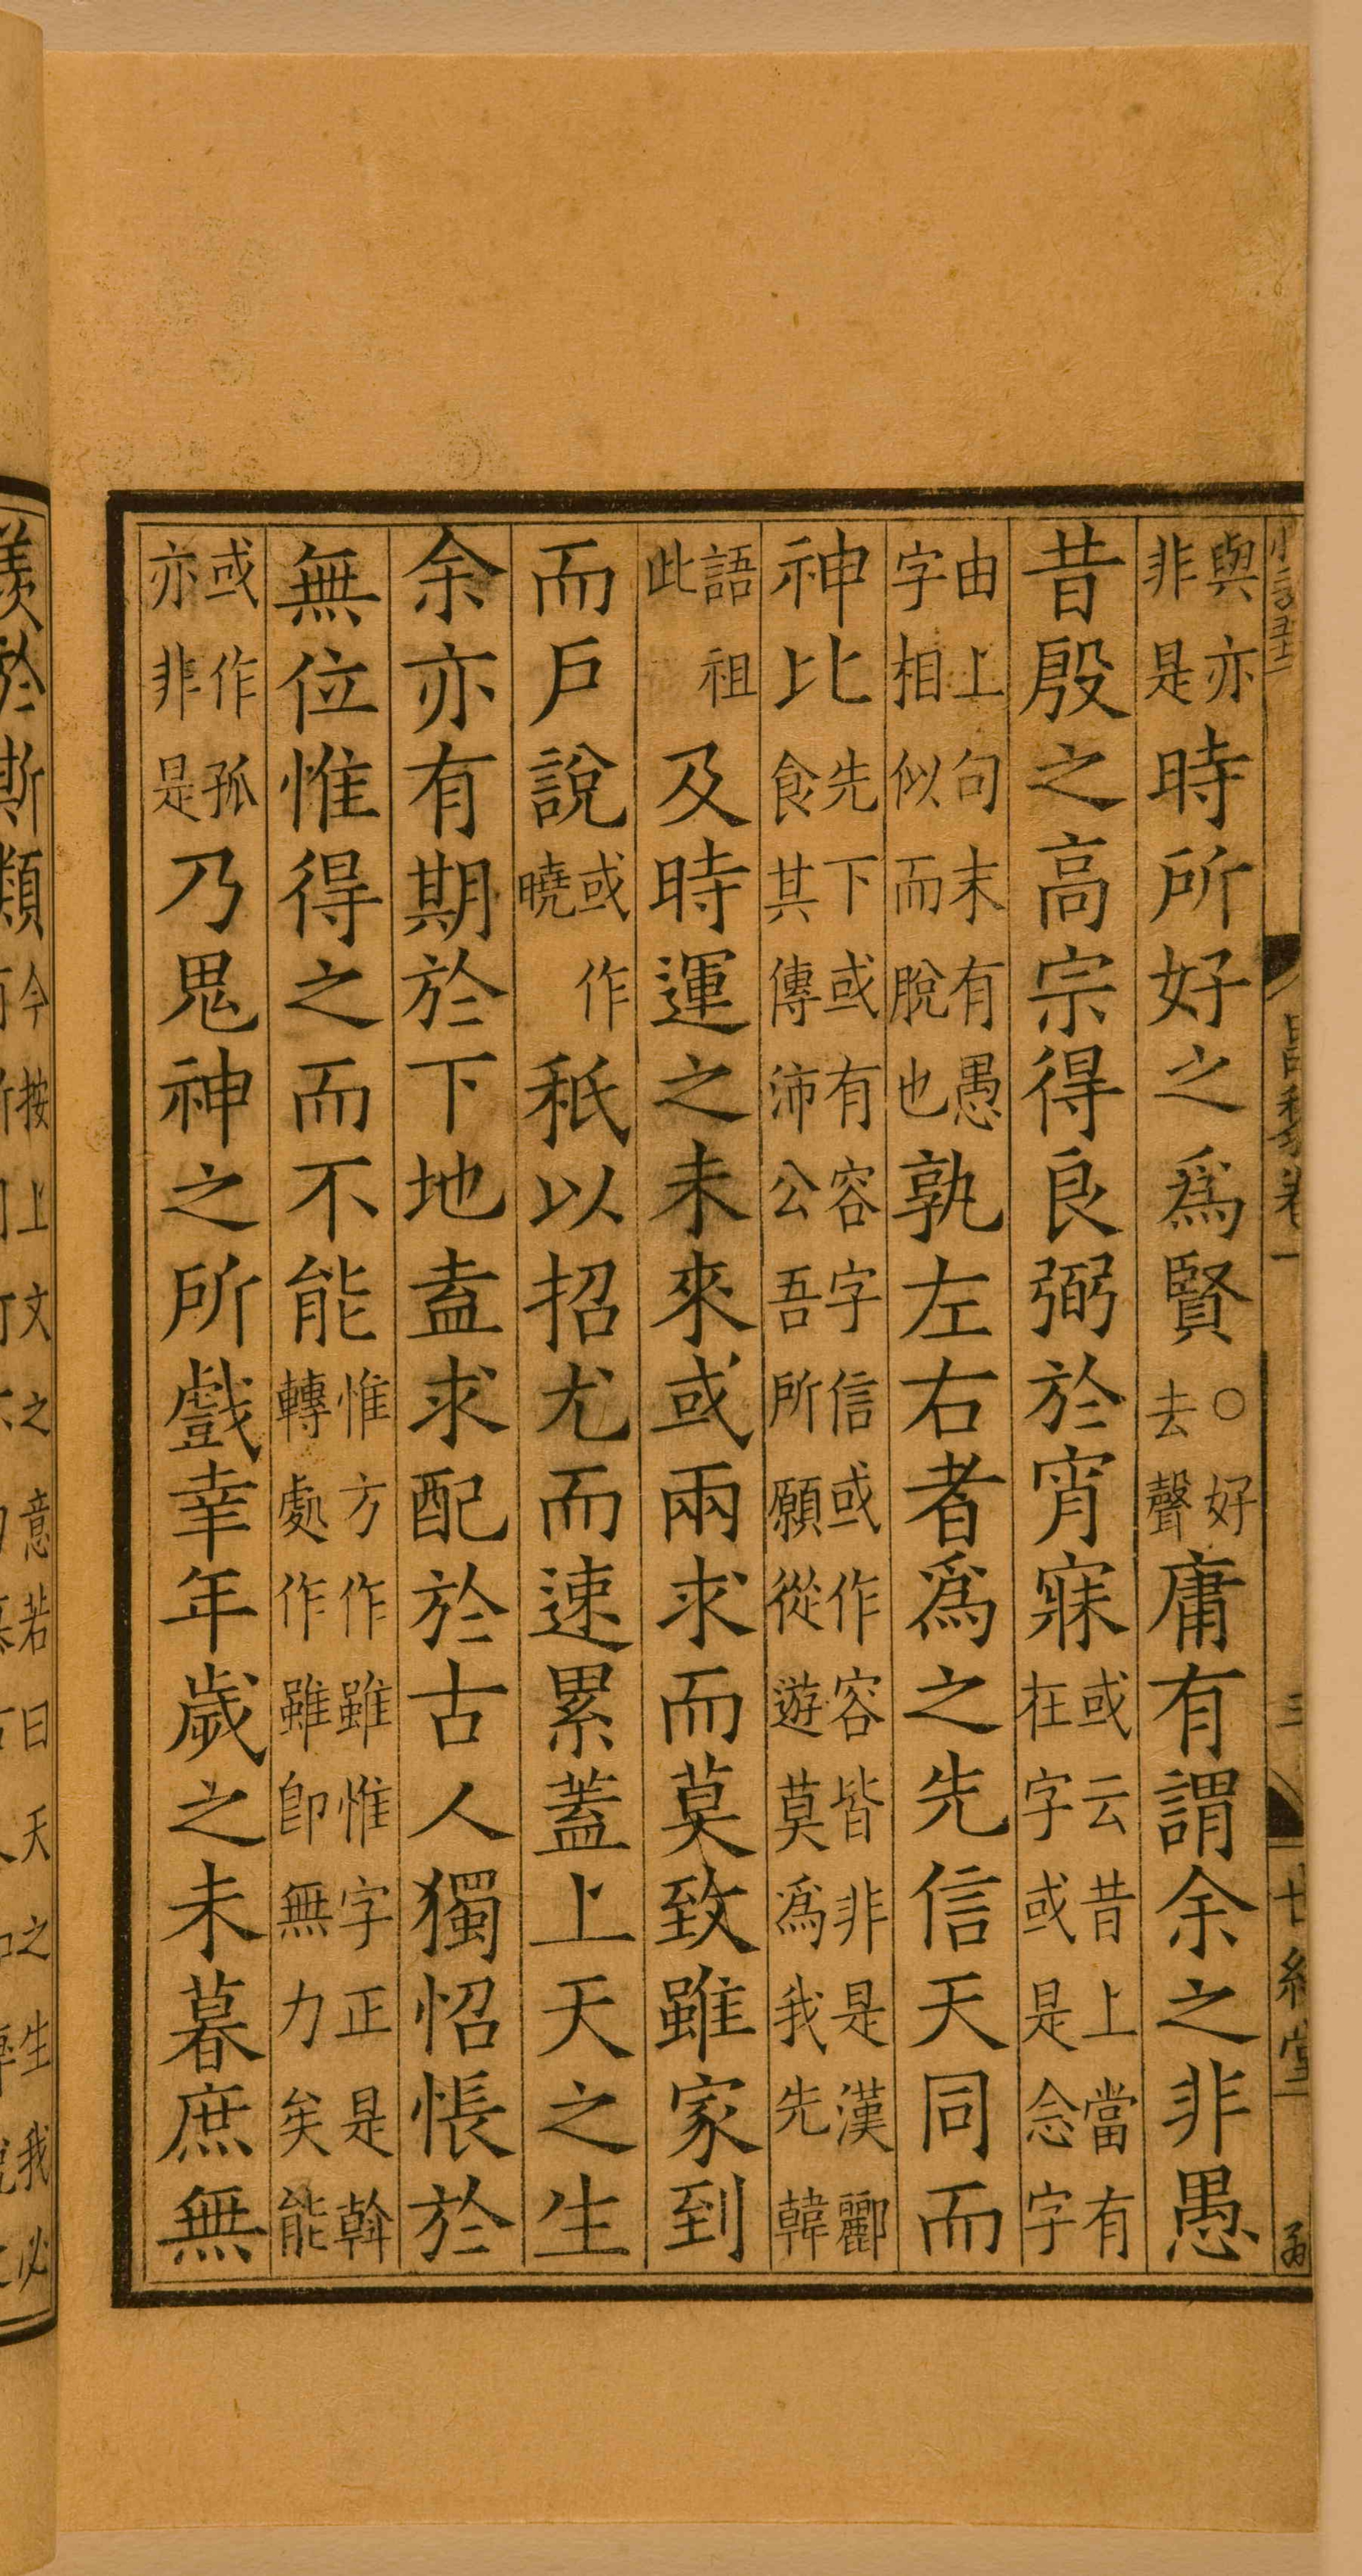 與亦非是時所好之爲賢○好去聲庸有謂余之非愚
昔殷之高宗得良弼於宵寐或云昔上當有在字或是念字
由上句末有愚字相似而脫也孰左右者爲之先信天同而
神比先下或有容字信或作容皆非是漢酈食其傳沛公吾所願從遊莫爲我先韓
語祖此及時運之未來或兩求而莫致雖家到
而戶說或作曉秖以招尤而速累蓋上天之生
余亦有期於下地盍求配於古人獨怊悵於
無位惟得之而不能惟方作雖惟字正是斡轉處作雖卽無力矣能
或作孤亦非是乃鬼神之所戲幸年歲之未暮庶無
昌黎卷一
三
世綵堂
羙於斯類今按上文之意若曰天之生我必